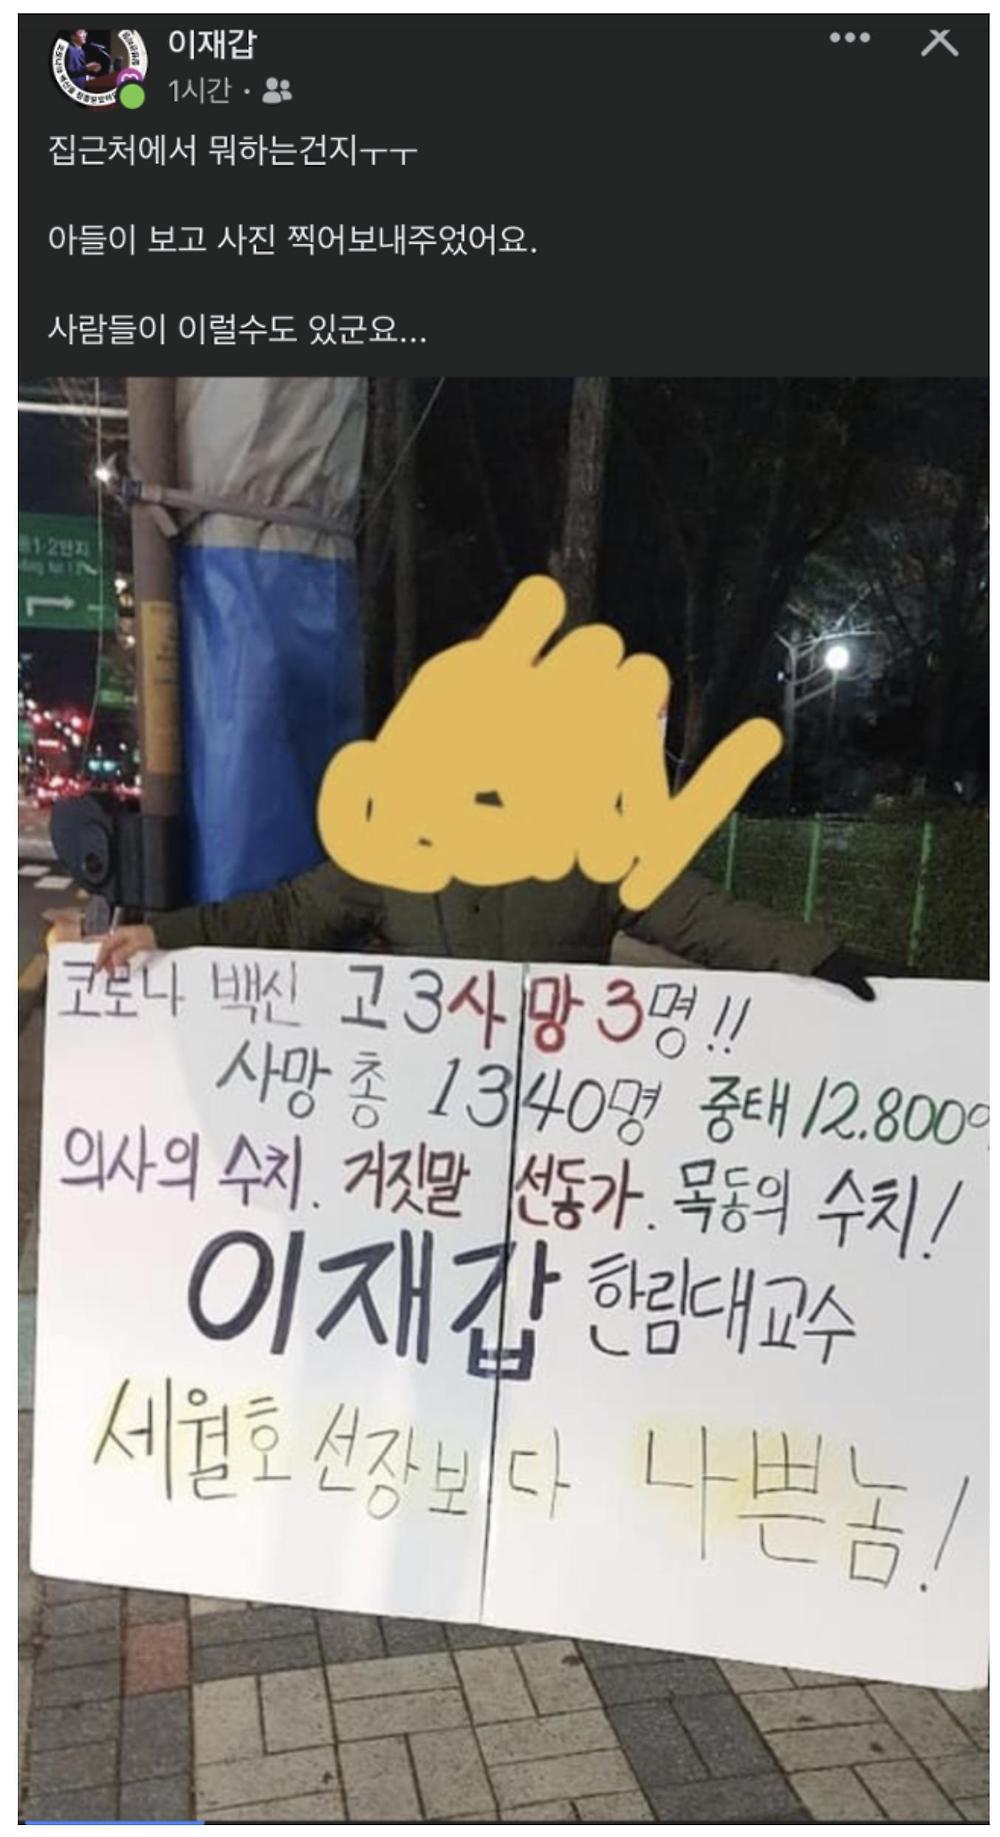 이재갑
1시간
집근처에서 뭐하는건지ㅜㅜ
아들이 보고 사진 찍어보내주었어요.
사람들이 이럴수도 있군요...
1·2단지
코로나 백신 고3사망3명!!
사망 총 1340명 중태12.800
의사의 수치. 거짓말 선동가. 목동의 수치!
이재갑 한림대교수
세월호 선장보다 나쁜놈!